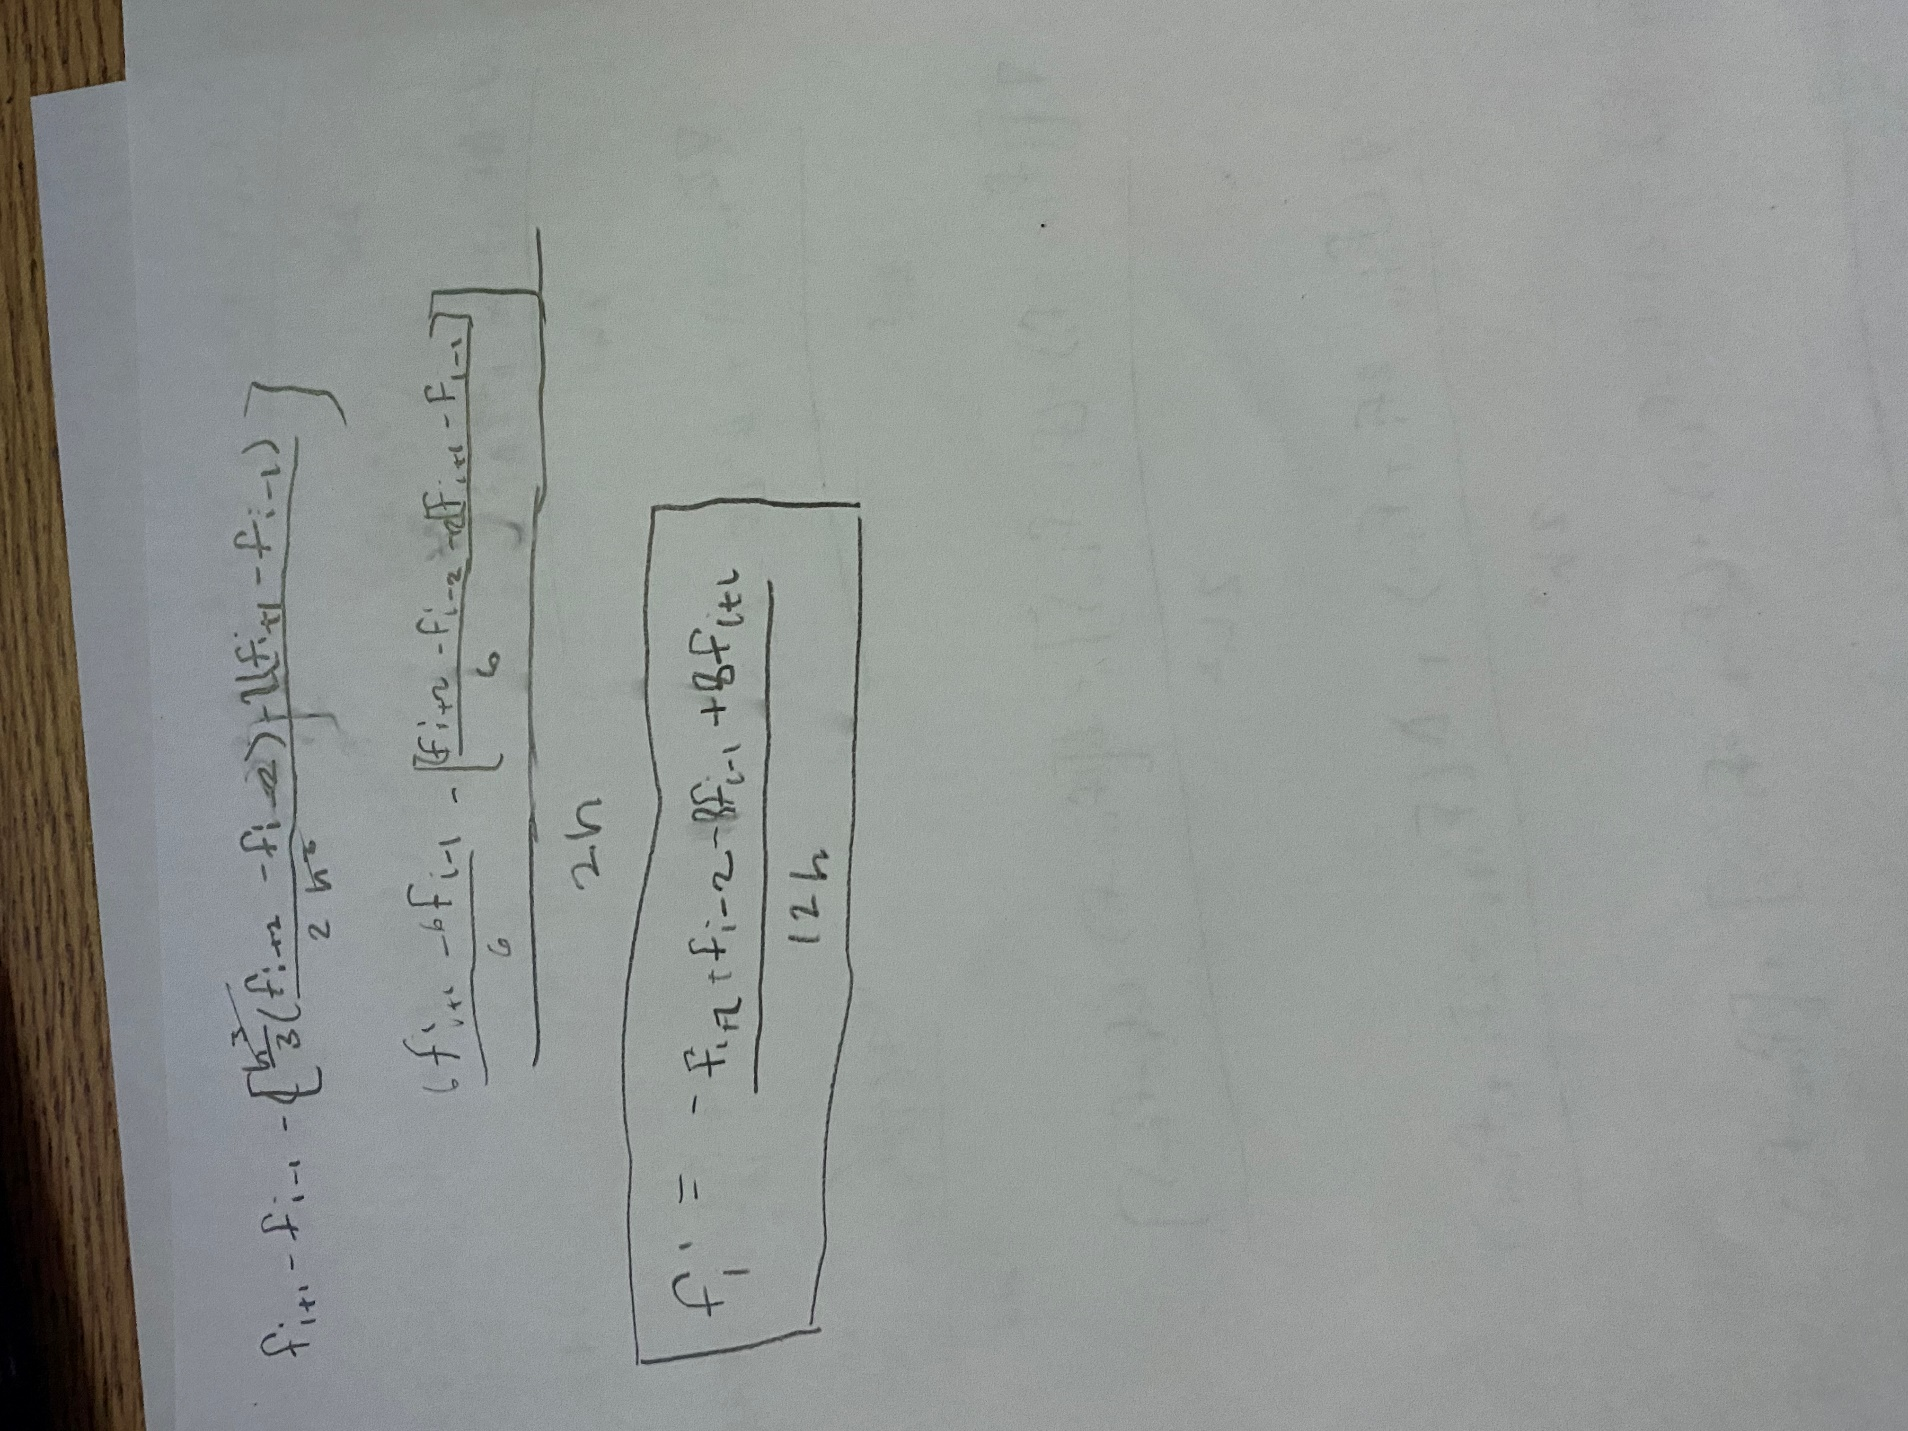 f_{i+1} - f_{i-1} - [h^3/3 (f_{i+2} - f_{i-2}) + 2(f_{i+1} - f_{i-1})]
2 h^3
6f_{i+1} - 6f_{i-1} - [(f_{i+2} - f_{i-2} - 2[f_{i+1} - f_{i-1}]]
6 6
2h
f_i' = - f_{i+2} + f_{i-2} - 8f_{i-1} + 8f_{i+2}
12h